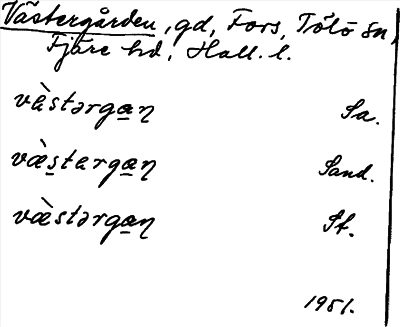 Västergården, gd, Fors, Tölö sn,
Fjäre hd, Hall. l.
væ̀stərga̲ɳ Sa.
væ̀s̲targa̲ɳ Sand.
væ̀stərga̲ɳ St.
1951.